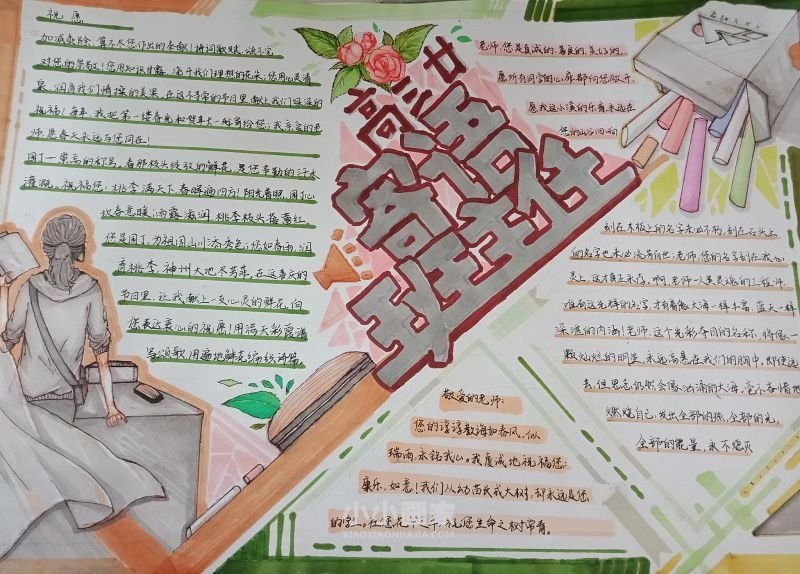 祝愿
加减乘除,算不尽您作出的奉献!诗词歌赋,颂不完
对您的崇敬!您用知识甘露,浇开我们理想的花朵;您用心灵清
泉,润育我们情操的美果。在这不寻常的节日里,献上我们深深的
祝福!每年,我把第一缕春光和贺年卡一起寄给您;我亲爱的老
师,愿春天永远与您同在!
用了一崇高的灯等,看那枝头绽放的鲜花,是您辛勤的汗水
灌溉。祝福您:桃李满天下,春晖遍四方!阳光普照,园丁心
地春意暖;雨露滋润,桃李枝头蓓蕾红。
您是园丁,为祖国山川添秀色;您如春雨,润
育桃李,神州大地尽芳菲。在这喜庆的
节日里,让我献上一支心灵的鲜花,向
您表达衷心的祝愿!用满天彩霞谱
写颂歌,用遍地鲜花编织诗篇
高三廿
寄语
班主任
老师,您是真诚的、善良的、美好的,
愿所有同学的心扉都向您敞开,
愿我这小溪的乐音永远在
您的山谷回响
刻在木板上的名字未必不朽,刻在石头上
的名字也未必流芳百世;老师,您的名字刻在我们心
灵上,这才真正永存。啊,老师——人类灵魂的工程师,
唯有这光辉的名字,才有着像大海一样丰富、蓝天一样
深湛的内涵!老师,这个光彩夺目的名称,将像一
颗灿烂的明星,永远高悬在我们的胸中,即使远
去,但思念仍然会像汹涌的大海,毫不吝惜地
燃烧自己,发出全部的热,全部的光,
全部的能量,永不熄灭
敬爱的老师:
您的谆谆教诲如春风,似
瑞雨,永铭我心。我虔诚地祝福您:
康乐,如意!我们从幼苗长成大树,却永远是您
的学生。在您花甲之年,祝您生命之树常青。
小小画家
XIAOXIAOHUAJIA.COM